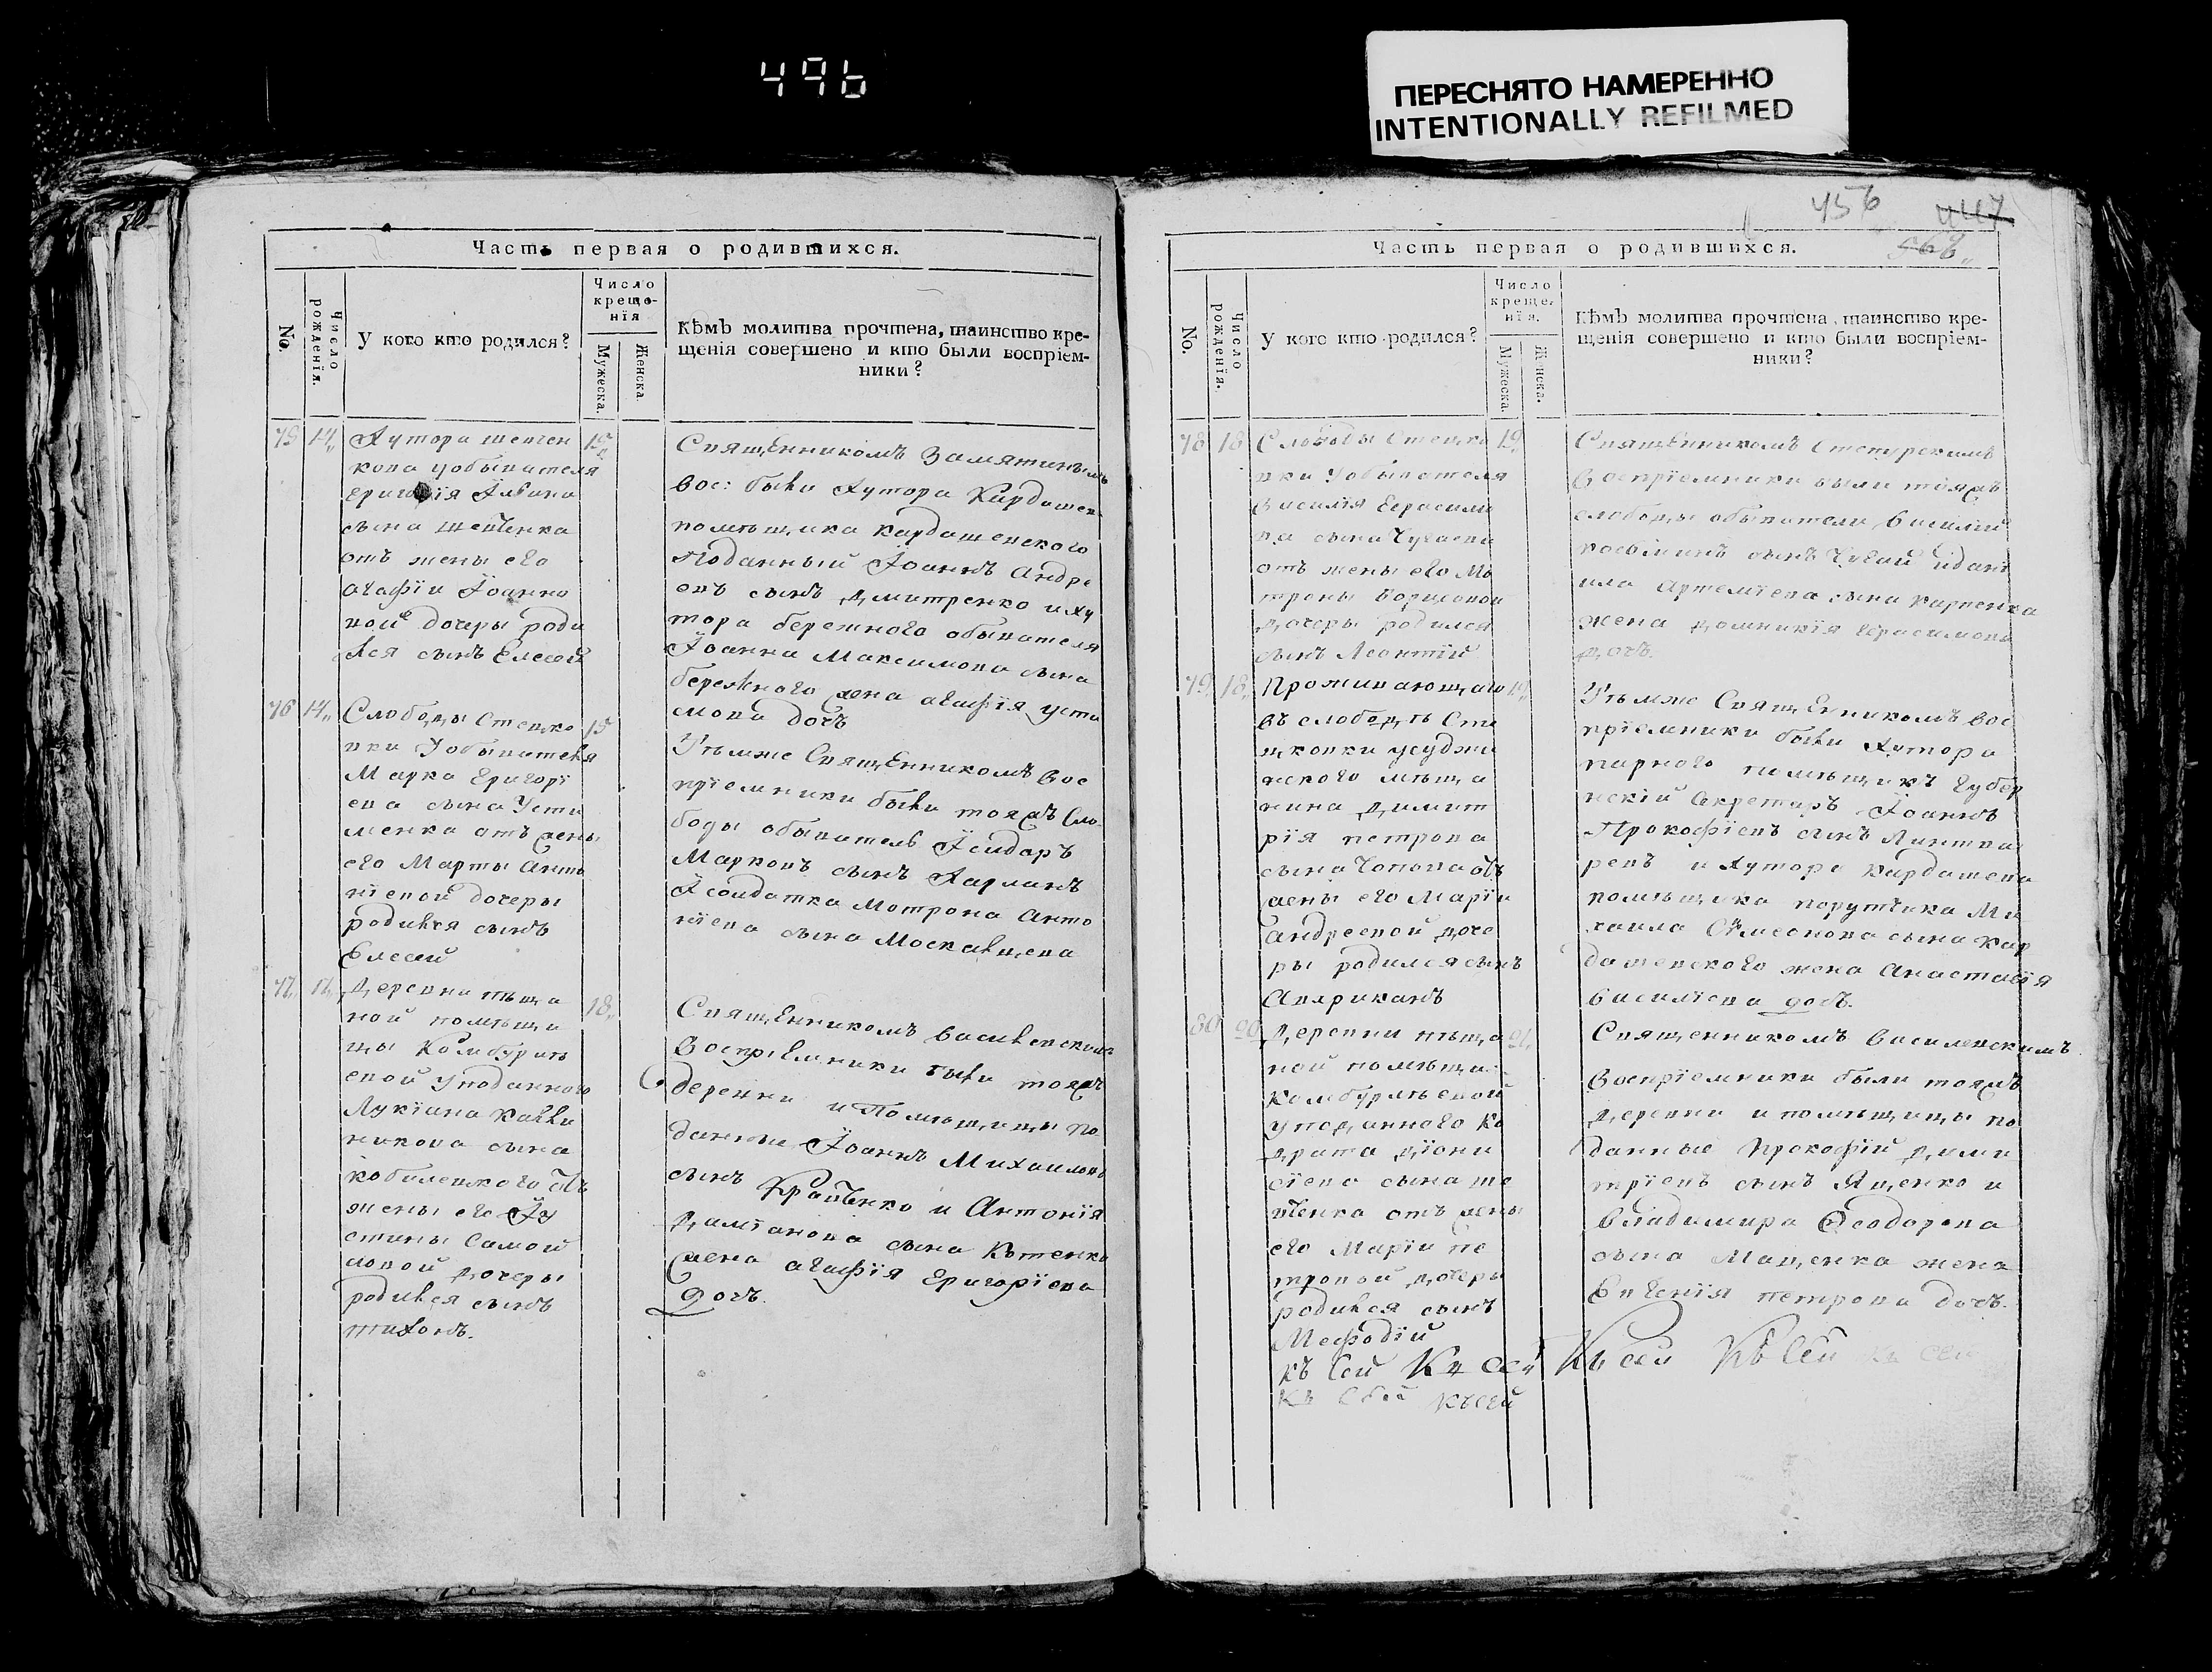 496
ПЕРЕСНЯТО НАМЕРЕННО
INTENTIONALLY REFILMED
Часть первая о родившихся.
No.
Число рожденія.
У кого кто родился?
Число
креще-
нїя
Мужеска.
Женска.
Кѣмъ молитва прочтена, таинство кре-
щенія совершено и кто были воспріем-
ники?
75 14 15
Хутора шевчен
кова уобывателя
Григорія
сына Шевченка
отъ жены его
агафіи Іоанно
вой дочеры роди
лся сынъ Елесей
Священникомъ Замятинымъ
вос: были Хутора Кардашев
помѣщика кардашевского
Подданный Іоаннъ Андре
евъ сынъ Дмитренко и ху
тора бережного обывателя
Іоанна Максимова сына
бережного жена агафія усти
мова дочъ
76 14 15
Слободы Стецко
вки Уобывателя
Марка Григорі
ева сына Усти
менка отъ жены
его Марты Анто
ніевой дочеры
родился сынъ
Елесей
Тѣмже Священникомъ Вос
пріемники были тояжъ Сло
боды обыватель Ісидоръ
Марковъ сынъ
Ісолдатка Мотрона Анто
ніева сына
77 17 18
Деревни пѣща
ной помѣщи
цы Камбурлѣ
евой уподанного
Лукіана
никова сына
отъ
жены его Іу
стины Самой
ловой дочеры
родился сынъ
тихонъ.
Священникомъ василевскимъ
Воспріемники были тояжъ
деревни и Помѣщицы по
данные Іоаннъ Михаиловъ
сынъ Кравченко и Антонія
Даміанова сына Котенка
жена агафія Григоріева
дочъ.
456 447
568
Часть первая о родившихся.
No.
Число рожденія.
У кого кто родился?
Число
креще-
нїя.
Мужеска.
Женска.
Кѣмъ молитва прочтена, таинство кре-
щенія совершено и кто были воспріем-
ники?
78 18 19
Слободы Стецко
вки Уобывателя
Василія Герасимо
ва сына Чугаева
отъ жены его Мо
троны
дочеры родился
сынъ Леонтій
Священникомъ
Воспріемники были тояжъ
слободы обыватели Василій
сынъ Чугай ідані
ила Артеміева сына карпенка
жена домникія Герасимова
дочъ.
79 18 19
Проживающаго
въ слободѣ Сте
цковки усуджи
нского мѣща
нина Димит
рія петрова
сына Попова отъ
жены его Маріи
андреевой доче
ры родился сынъ
Авериканъ
Тѣмже Священникомъ Вос
пріемники были Хутора
парного помѣщикъ Губер
нскій Секретаръ Іоаннъ
Прокофіевъ сынъ Линтва
ревъ и Хутора Кардашева
помѣщика порутчика Ми
хаила Сѵмеонова сына кар
дашевского жена Анастасія
Василіева дочъ.
80 20 21
Деревни пѣща
ной помѣщи
Камбурлѣевой
уподанного Ко
драта діони
сіева сына ше
вченка отъ жены
его Маріи пе
тровой дочеры
родился сынъ
Мефодій
Священникомъ Василевскимъ
Воспріемники были тояжъ
деревни и помѣщицы по
данные Прокофій Дими
тріевъ сынъ Яценко и
Владимира Ѳеодорова
сына Маценка жена
Евгенія петрова дочъ.
къ Сей Къ Сей Къ сей Къ Сей Къ сей
къ Сей Къ сей